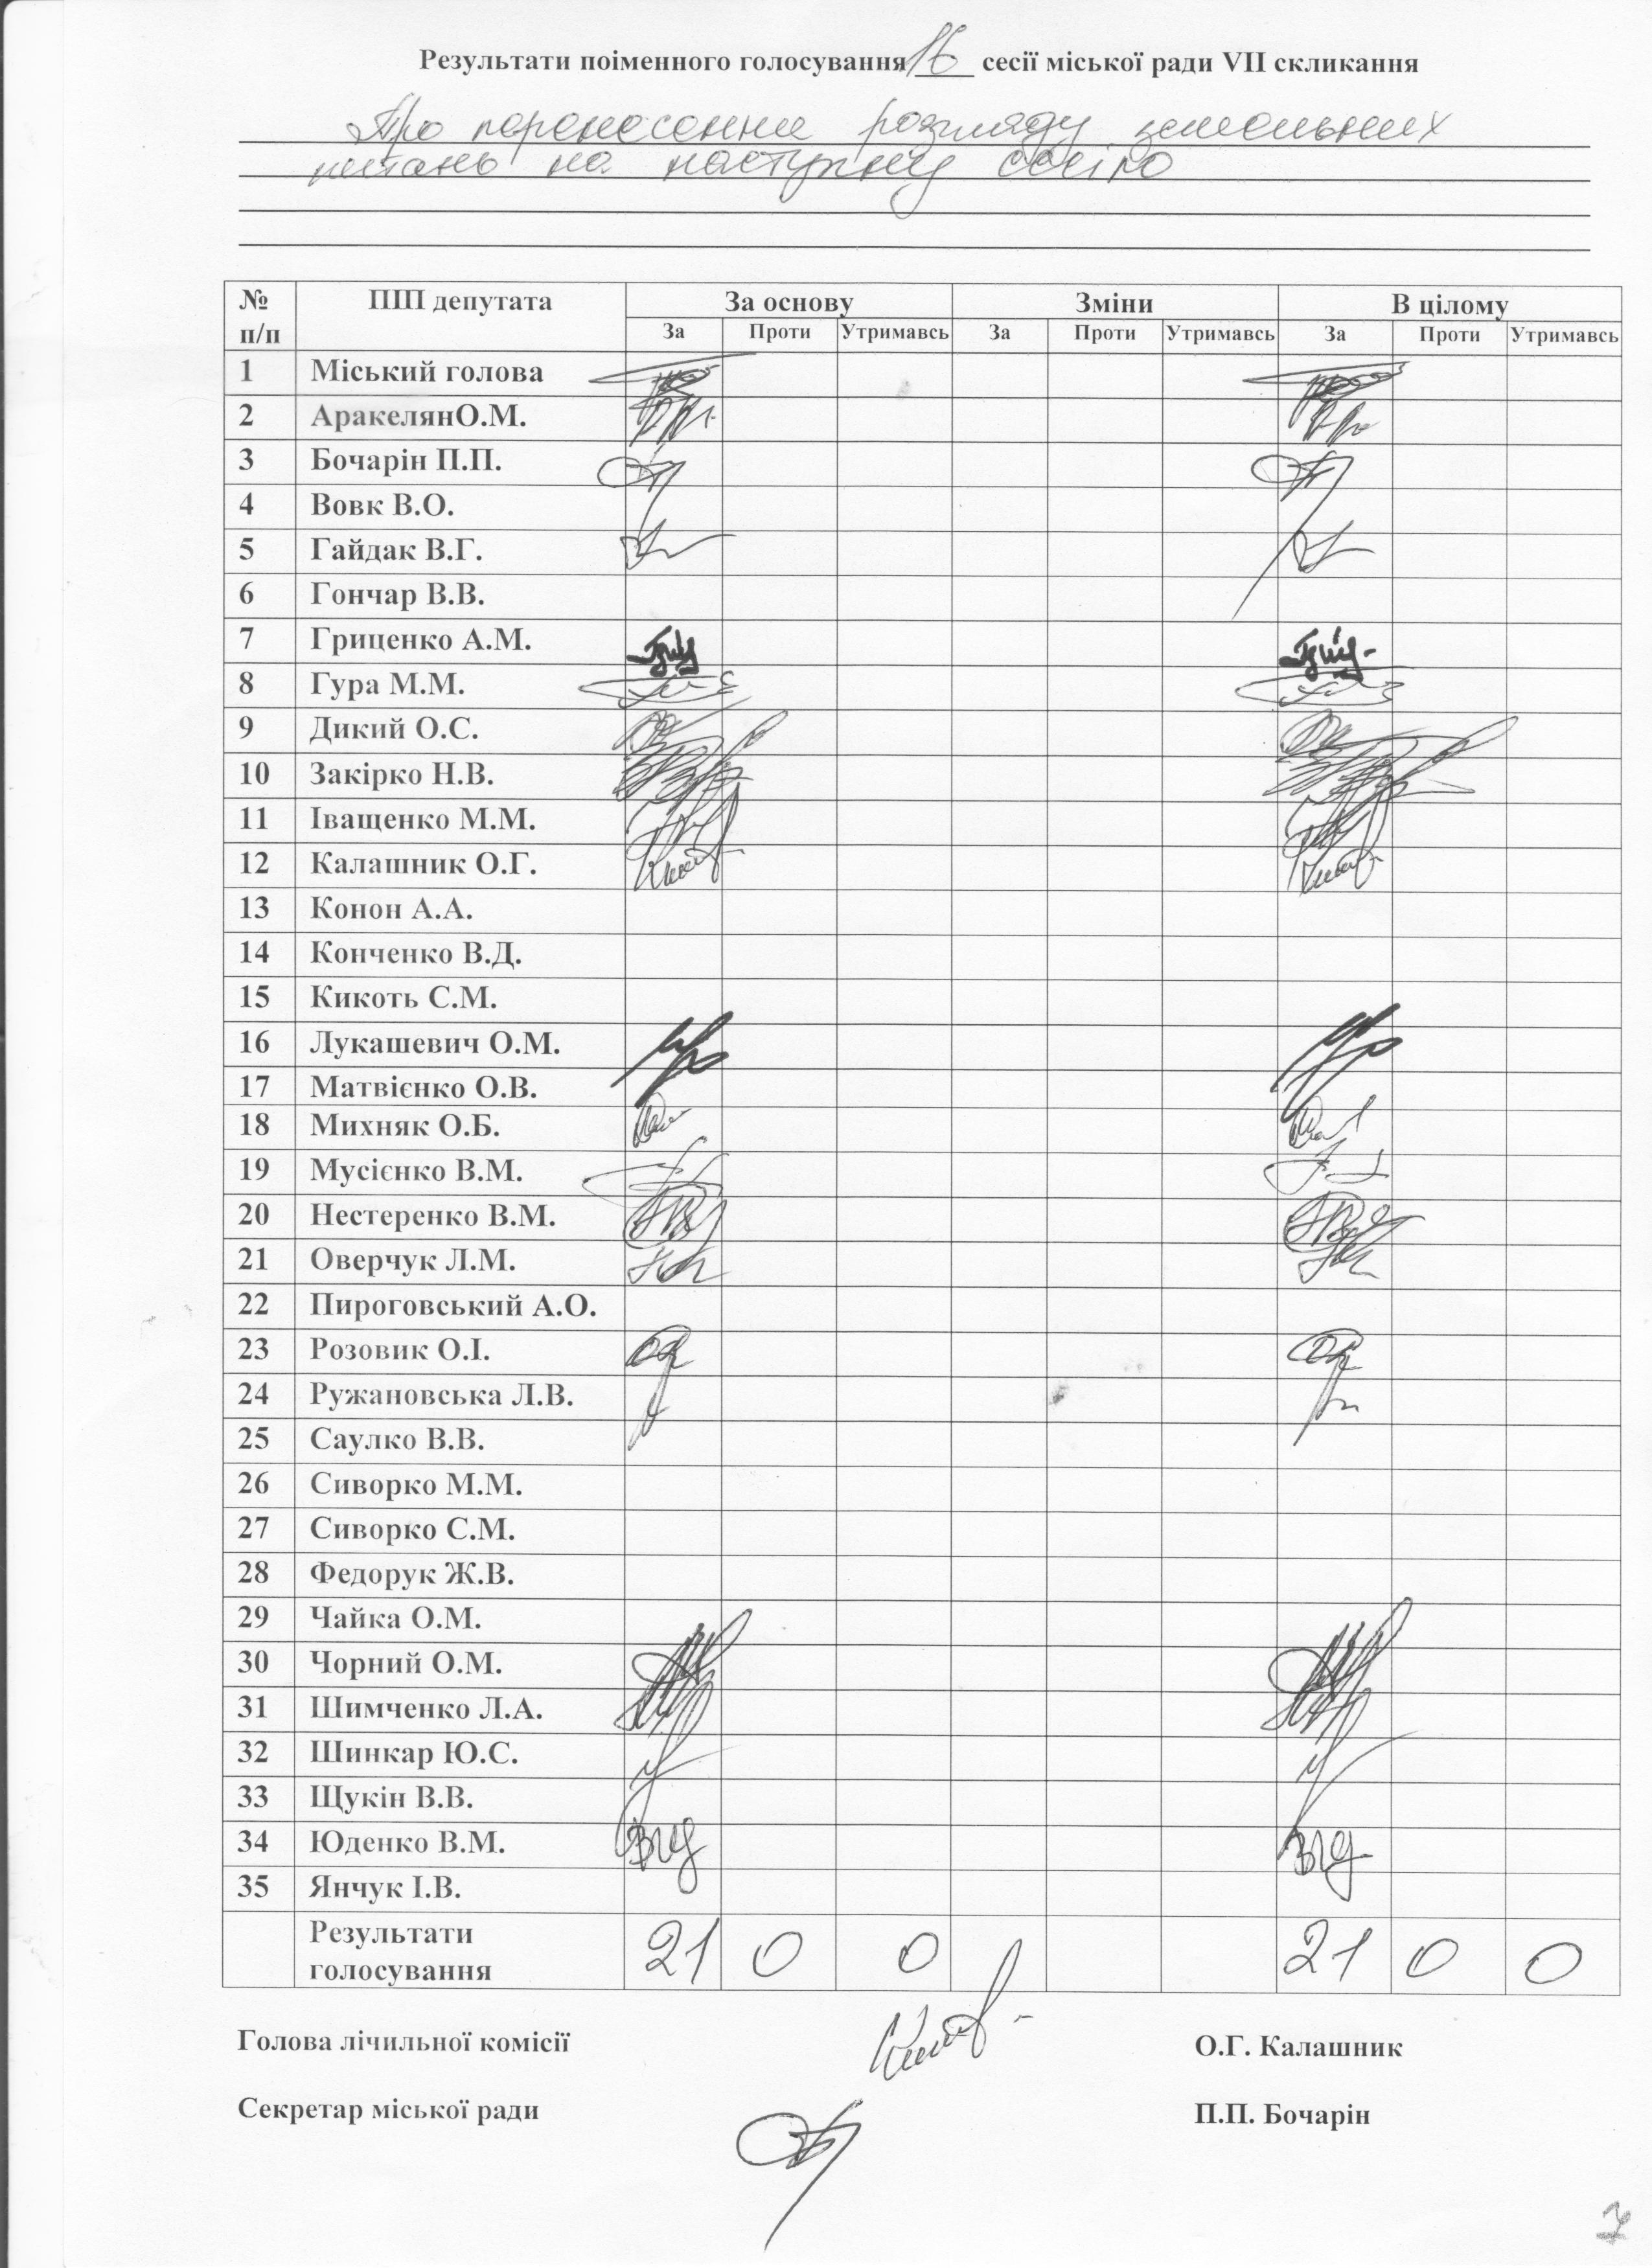 Результати поіменного голосування 16 сесії міської ради VII скликання
Про перенесення розгляду земельних
питань на наступну сесію
№ п/п ПІП депутата За основу Зміни В цілому
За Проти Утримавсь За Проти Утримавсь За Проти Утримавсь
1 Міський голова
2 АракелянО.М.
3 Бочарін П.П.
4 Вовк В.О.
5 Гайдак В.Г.
6 Гончар В.В.
7 Гриценко А.М.
8 Гура М.М.
9 Дикий О.С.
10 Закірко Н.В.
11 Іващенко М.М.
12 Калашник О.Г.
13 Конон А.А.
14 Конченко В.Д.
15 Кикоть С.М.
16 Лукашевич О.М.
17 Матвієнко О.В.
18 Михняк О.Б.
19 Мусієнко В.М.
20 Нестеренко В.М.
21 Оверчук Л.М.
22 Пироговський А.О.
23 Розовик О.І.
24 Ружановська Л.В.
25 Саулко В.В.
26 Сиворко М.М.
27 Сиворко С.М.
28 Федорук Ж.В.
29 Чайка О.М.
30 Чорний О.М.
31 Шимченко Л.А.
32 Шинкар Ю.С.
33 Щукін В.В.
34 Юденко В.М.
35 Янчук І.В.
Результати
голосування 21 0 0 21 0 0
Голова лічильної комісії О.Г. Калашник
Секретар міської ради П.П. Бочарін
7